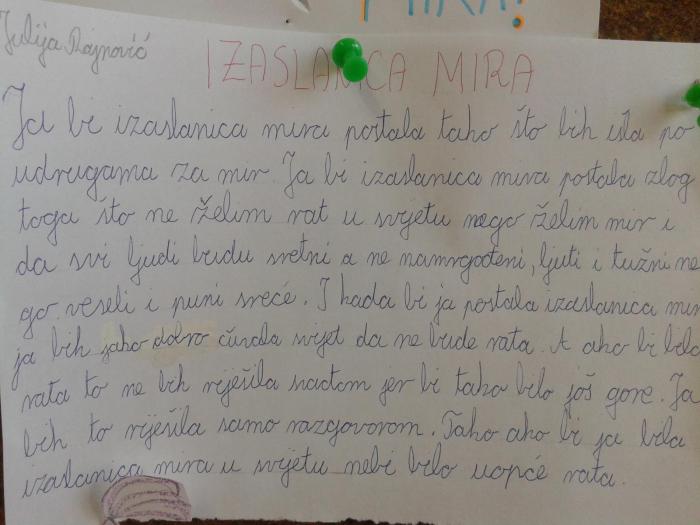 MIRA!
Julija Rajnović
IZASLANICA MIRA
Ja bi izaslanica mira postala tako što bih išla po
udrugama za mir. Ja bi izaslanica mira postala zlog
toga što ne želim rat u svijetu nego želim mir i
da svi ljudi budu sretni a ne namrgođeni, ljuti i tužni ne
go veseli i puni sreće. I kada bi ja postala izaslanica mir
ja bih jako dobro čuvala svijet da ne bude rata. A ako bi bilo
rata to ne bih riješila ratom jer bi tako bilo još gore. Ja
bih to riješila samo razgovorom. Tako ako bi ja bila
izaslanica mira u svijetu nebi bilo uopće rata.